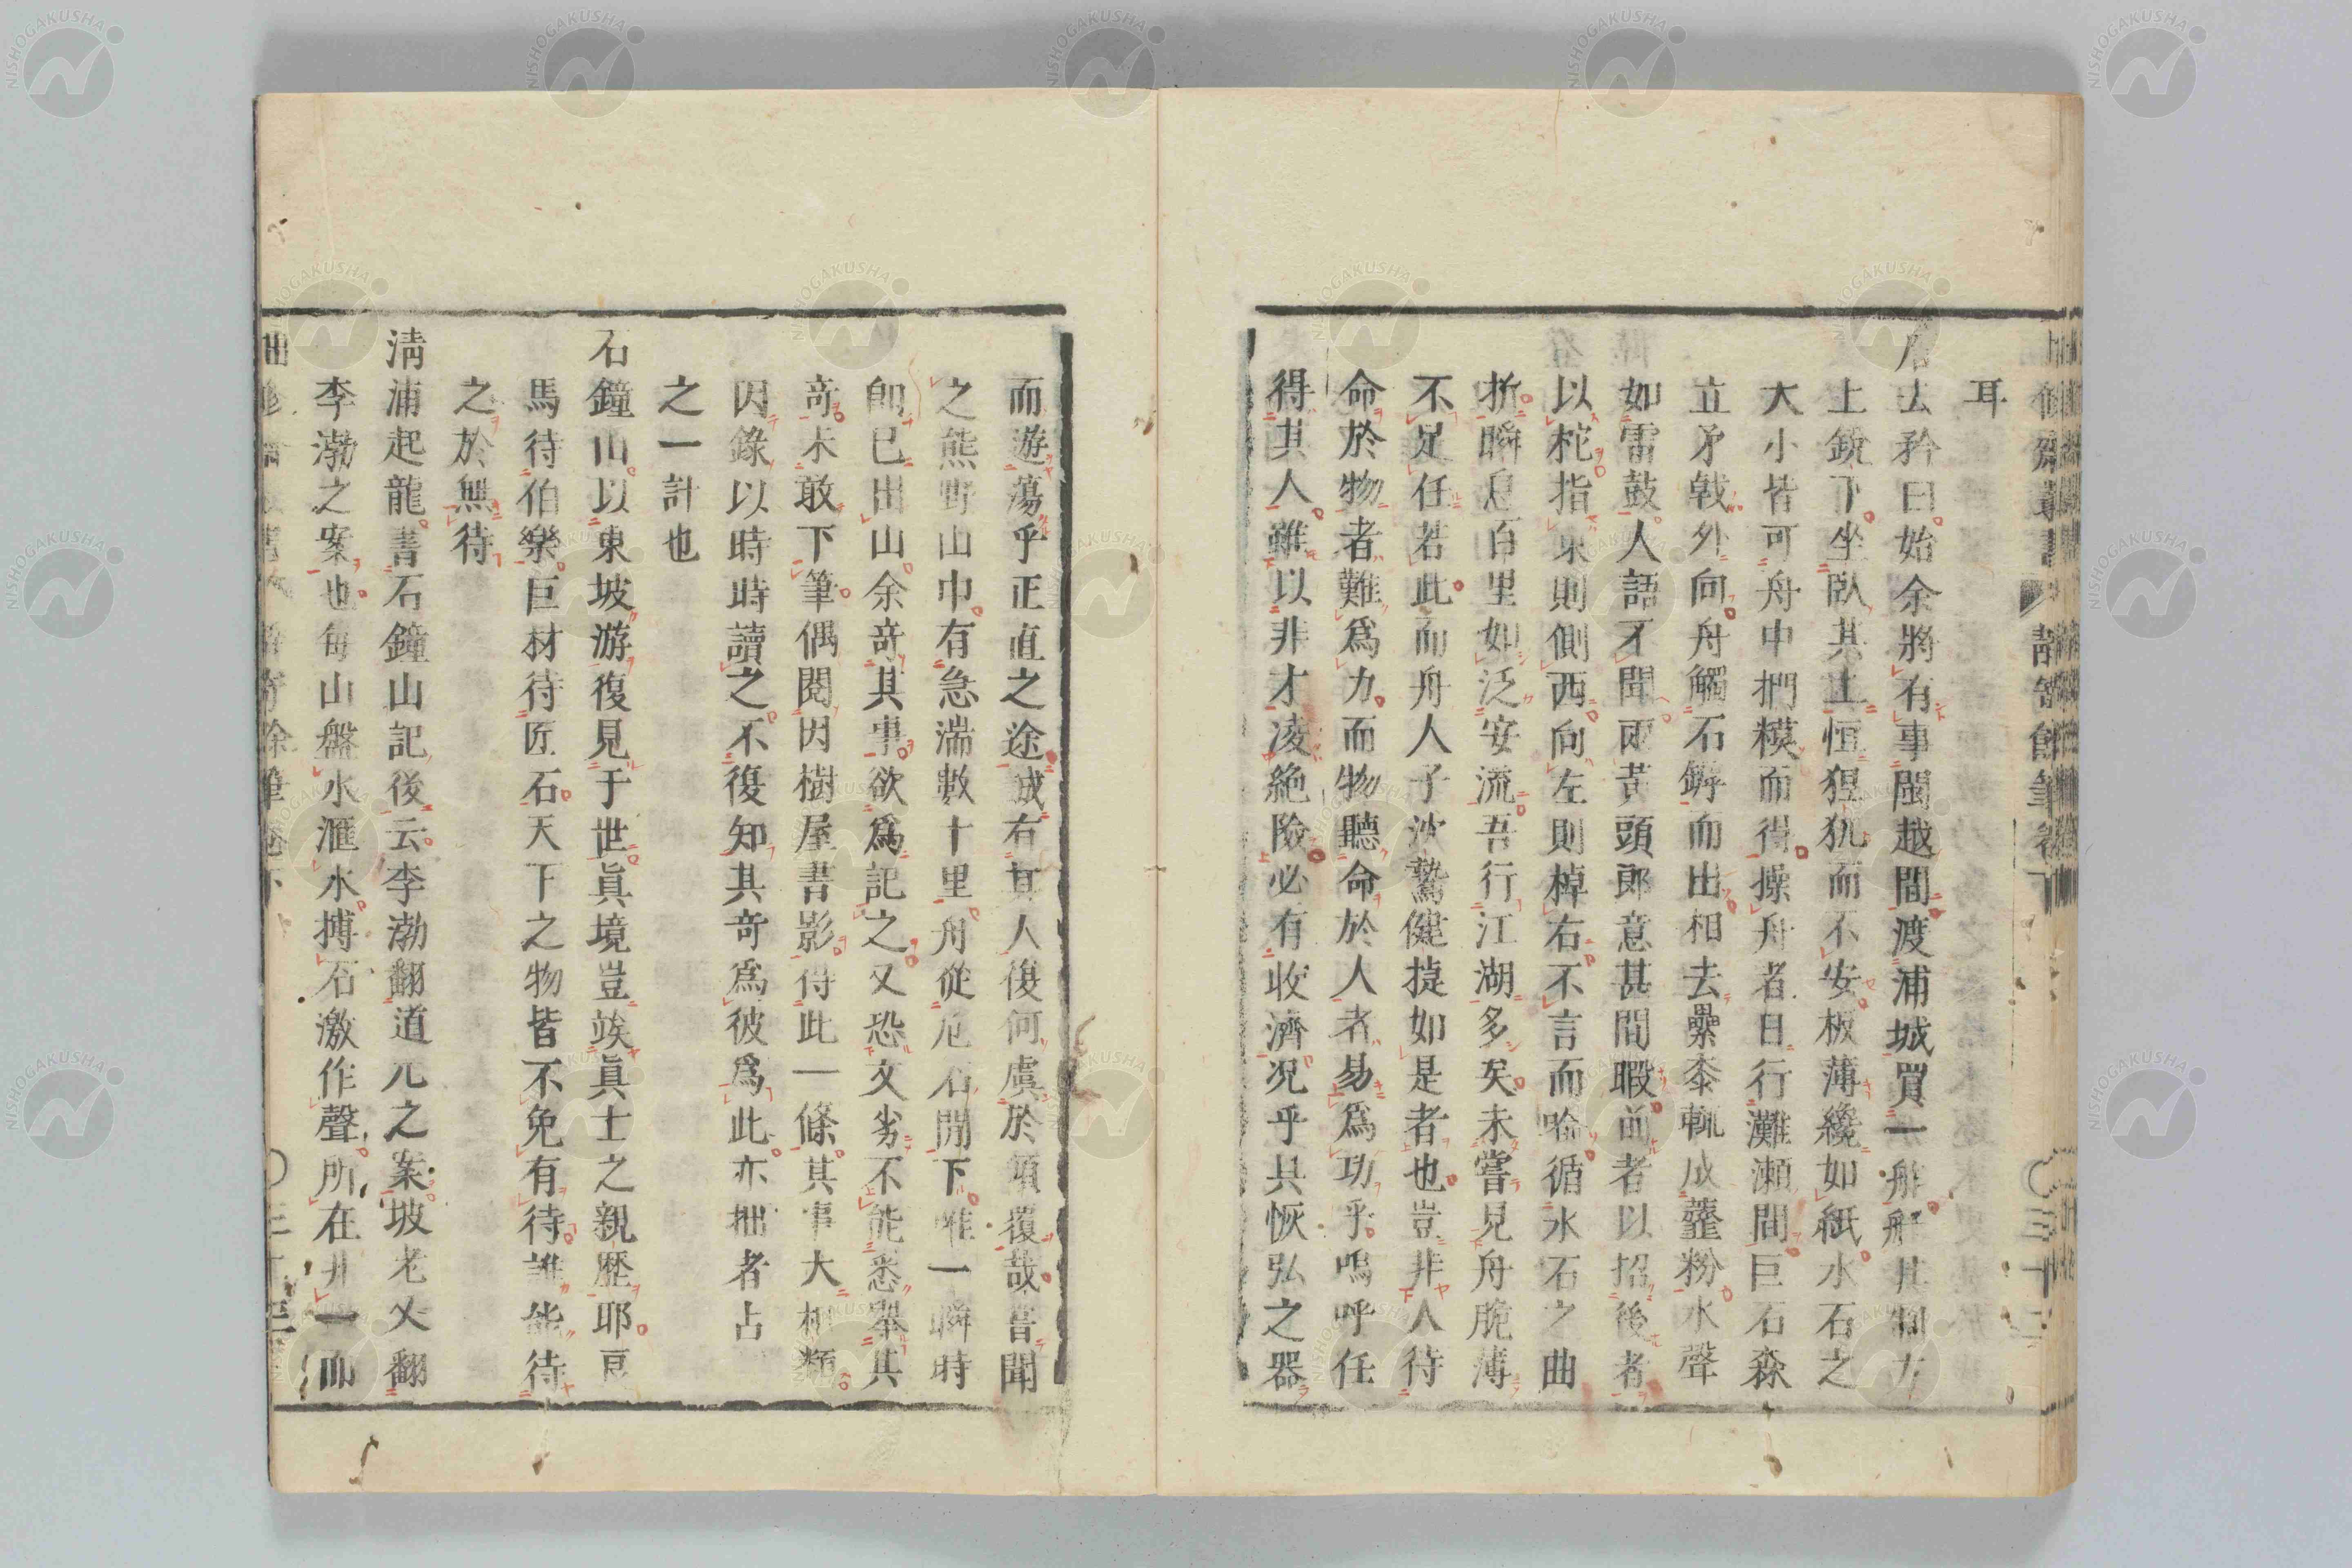 耳
唐去矜曰始余將有事閩越間渡浦城買一舴艋其制方
上銳下坐臥其上恒猩犺而不安板薄纔如紙水石之
大小皆可舟中捫模而得操舟者日行灘瀨間巨石森
立矛戟外向舟觸石罅而出相去纍黍輒成虀粉水聲
如雷鼓人語不聞而黃頭郎意甚間暇前者以招後者
以柁指東則側西向左則棹右不言而喻循水石之曲
折瞬息百里如泛安流吾行江湖多矣未嘗見舟脆薄
不足任若此而舟人子沈鷙健捷如是者也豈非人待
命於物者難爲力而物聽命於人者易爲功乎嗚呼任
得其人雖以非才凌絶險必有收濟况乎具恢弘之器
而遊蕩乎正直之途誠右其人復何虞於傾覆哉嘗聞
之熊野山中有急湍數十里舟從巵石間下唯一瞬時
卽已出山余奇其事欲爲記之又恐文劣不能悉舉其
奇未敢下筆偶閱因樹屋書影得此一條其事大相類
因錄以時時讀之不復知其奇爲彼爲此亦拙者占
之一計也
石鐘山以東坡游復見于世眞境豈竢眞士之親歷耶
馬待伯樂巨材待匠石天下之物皆不免有待誰能待
之於無待
淸浦起龍書石鐘山記後云李渤翻道元之案坡老又翻
李渤之案也每山盤水滙水搏石激作聲所在井一而